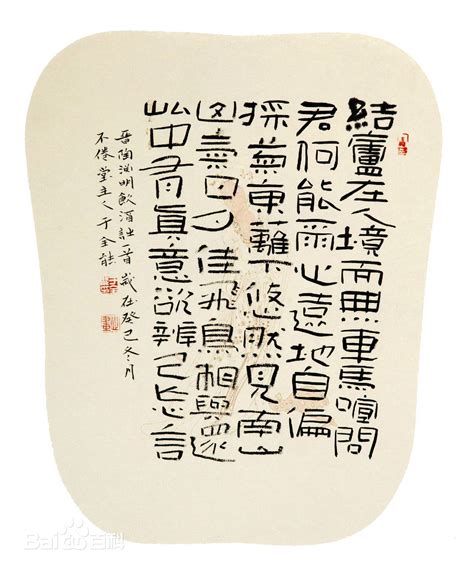 結廬在人境而無車馬喧問
君何能爾心遠地自偏
採菊東籬下悠然見南山
山氣日夕佳飛鳥相與還
此中有眞意欲辨已忘言
晉陶淵明飲酒詩一首歲在癸巳冬月
不倦堂主人于
Bai百科